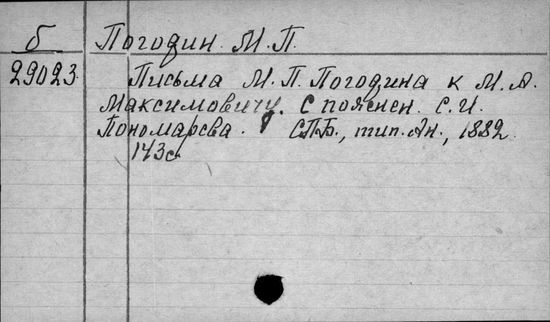 б Погодин М. П.
29023 Письма М. П. Погодина к М. А.
Максимовичу. С пояснен. С. И.
Пономарева. СПБ., тип. Ан., 1882.
143с.